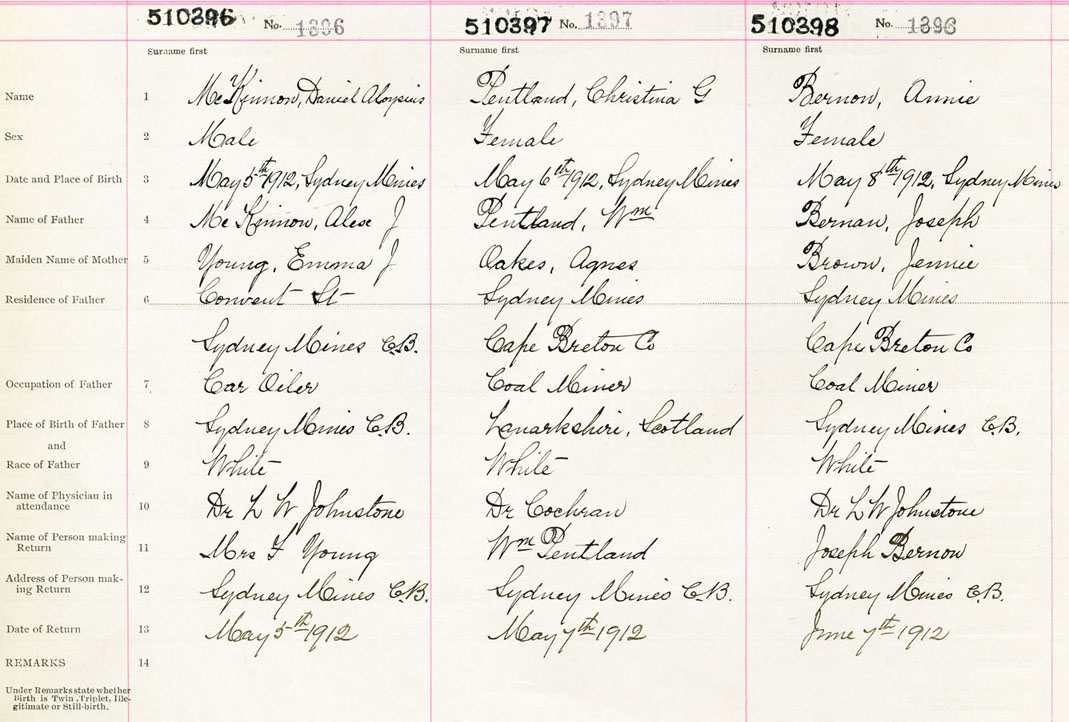 510396 No. 1396 510397 No. 1397 510398 No. 1398
Surname first Surname first Surname first
Name 1 McKinnon, Daniel Aloysius Pentland, Christina G Bernow, Annie
Sex 2 Male Female Female
Date and Place of Birth 3 May 5th 1912, Sydney Mines May 6th 1912, Sydney Mines May 8th 1912, Sydney Mines
Name of Father 4 McKinnon, Alex J Pentland, Wm Bernan, Joseph
Maiden Name of Mother 5 Young, Emma J Oakes, Agnes Brown, Jennie
Residence of Father 6 Convent St Sydney Mines Sydney Mines
Sydney Mines C.B. Cape Breton Co Cape Breton Co
Occupation of Father 7 Car Oiler Coal Miner Coal Miner
Place of Birth of Father 8 Sydney Mines C.B. Lanarkshire, Scotland Sydney Mines C.B.
and
Race of Father 9 White White White
Name of Physician in
attendance 10 Dr L W Johnstone Dr Cochran Dr L W Johnstone
Name of Person making
Return 11 Mrs F Young Wm Pentland Joseph Bernow
Address of Person mak-
ing Return 12 Sydney Mines C.B. Sydney Mines C.B. Sydney Mines C.B.
Date of Return 13 May 5th 1912 May 7th 1912 June 7th 1912
REMARKS 14
Under Remarks state whether
Birth is Twin, Triplet, Ille-
gitimate or Still-birth.